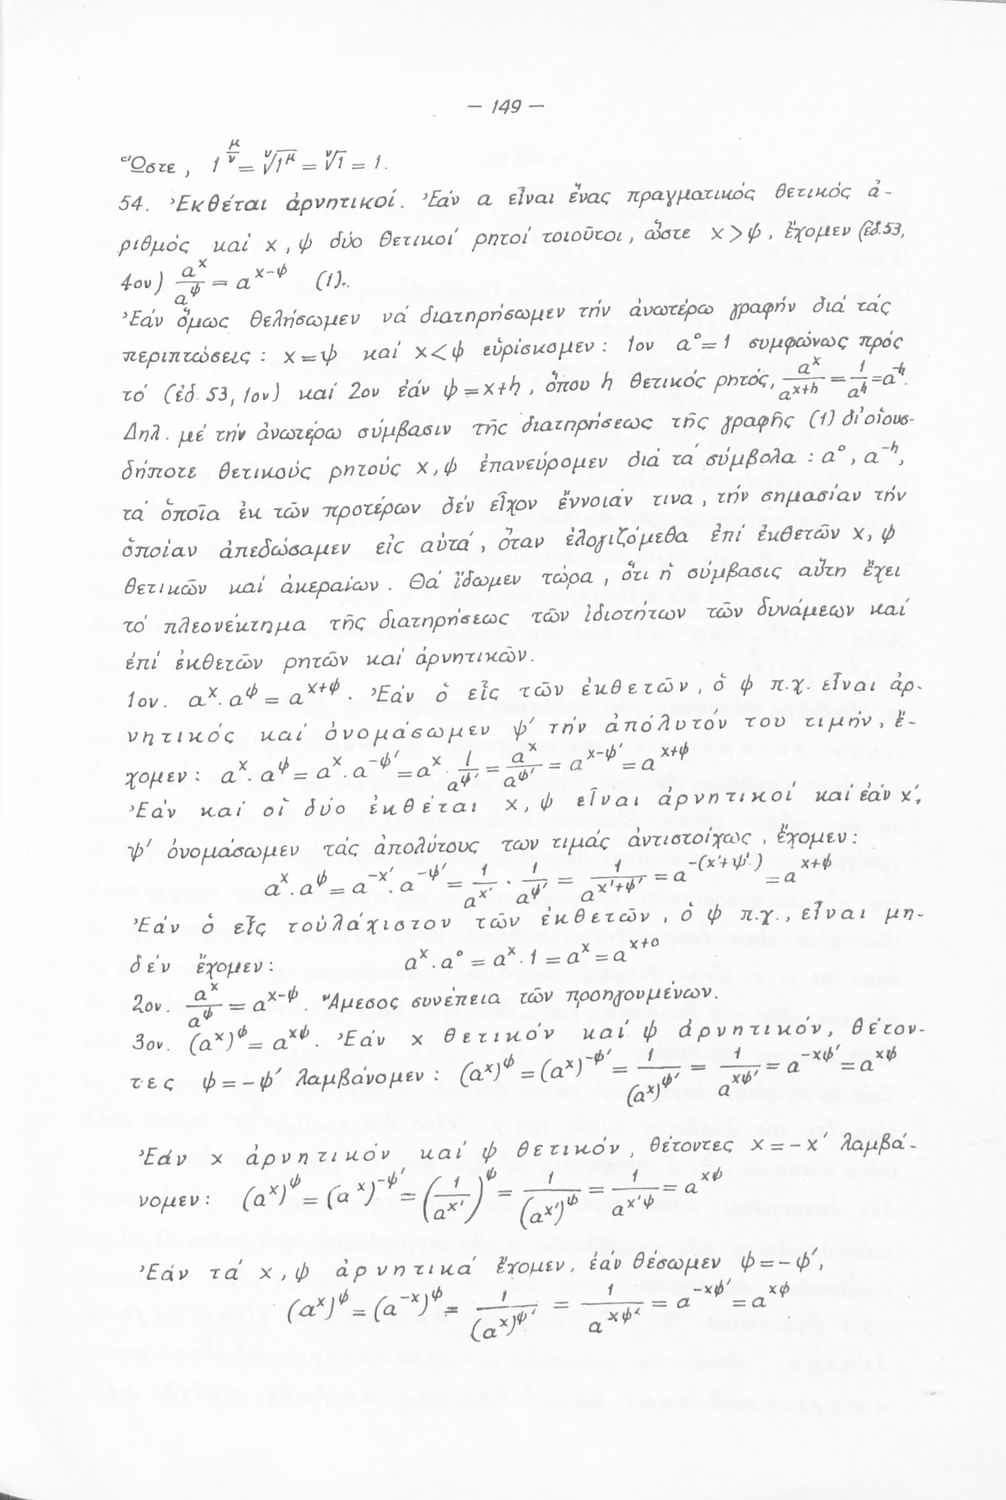 — 149 —
Ὥστε, 1^{μ/ν} = ᵛ√1^μ = ᵛ√1 = 1.
54. Ἐκθέται ἀρνητικοί. Ἐάν α εἶναι ἕνας πραγματικός θετικός ἀ-
ριθμός καί x, ψ δύο θετικοί ρητοί τοιοῦτοι, ὥστε x > ψ, ἔχομεν (ἐδ. 53,
4ον) α^x/α^ψ = α^{x-ψ} (1).
Ἐάν ὅμως θελήσωμεν νά διατηρήσωμεν τήν ἀνωτέρω γραφήν διά τάς
περιπτώσεις : x = ψ καί x < ψ εὑρίσκομεν : 1ον α° = 1 συμφώνως πρός
τό (ἐδ. 53, 1ον) καί 2ον ἐάν ψ = x+h, ὅπου h θετικός ρητός, α^x/α^{x+h} = 1/α^h = α^{-h}.
Δηλ. μέ τήν ἀνωτέρω σύμβασιν τῆς διατηρήσεως τῆς γραφῆς (1) δι' οἱουσ-
δήποτε θετικούς ρητούς x, ψ ἐπανεύρομεν διά τά σύμβολα : α°, α^{-h},
τά ὁποῖα ἐκ τῶν προτέρων δέν εἶχον ἔννοιάν τινα, τήν σημασίαν τήν
ὁποίαν ἀπεδώσαμεν εἰς αὐτά, ὅταν ἐλογιζόμεθα ἐπί ἐκθετῶν x, ψ
θετικῶν καί ἀκεραίων. Θά ἴδωμεν τώρα, ὅτι ἡ σύμβασις αὕτη ἔχει
τό πλεονέκτημα τῆς διατηρήσεως τῶν ἰδιοτήτων τῶν δυνάμεων καί
ἐπί ἐκθετῶν ρητῶν καί ἀρνητικῶν.
1ον. α^x . α^ψ = α^{x+ψ}. Ἐάν ὁ εἷς τῶν ἐκθετῶν, ὁ ψ π.χ. εἶναι ἀρ-
νητικός καί ὀνομάσωμεν ψ' τήν ἀπόλυτόν του τιμήν, ἔ-
χομεν : α^x . α^ψ = α^x . α^{-ψ'} = α^x . 1/α^{ψ'} = α^x/α^{ψ'} = α^{x-ψ'} = α^{x+ψ}
Ἐάν καί οἱ δύο ἐκθέται x, ψ εἶναι ἀρνητικοί καί ἐάν x',
ψ' ὀνομάσωμεν τάς ἀπολύτους των τιμάς ἀντιστοίχως, ἔχομεν :
α^x . α^ψ = α^{-x'} . α^{-ψ'} = 1/α^{x'} . 1/α^{ψ'} = 1/α^{x'+ψ'} = α^{-(x'+ψ')} = α^{x+ψ}
Ἐάν ὁ εἷς τοὐλάχιστον τῶν ἐκθετῶν, ὁ ψ π.χ., εἶναι μη-
δέν ἔχομεν : α^x . α° = α^x . 1 = α^x = α^{x+0}
2ον. α^x/α^ψ = α^{x-ψ}. Ἄμεσος συνέπεια τῶν προηγουμένων.
3ον. (α^x)^ψ = α^{xψ}. Ἐάν x θετικόν καί ψ ἀρνητικόν, θέτον-
τες ψ = -ψ' λαμβάνομεν : (α^x)^ψ = (α^x)^{-ψ'} = 1/(α^x)^{ψ'} = 1/α^{xψ'} = α^{-xψ'} = α^{xψ}
Ἐάν x ἀρνητικόν καί ψ θετικόν, θέτοντες x = -x' λαμβά-
νομεν : (α^x)^ψ = (α^x)^{-ψ'} = (1/α^{x'})^ψ = 1/(α^{x'})^ψ = 1/α^{x'ψ} = α^{xψ}
Ἐάν τά x, ψ ἀρνητικά ἔχομεν, ἐάν θέσωμεν ψ = -ψ',
(α^x)^ψ = (α^{-x})^ψ = 1/(α^x)^{ψ'} = 1/α^{xψ'} = α^{-xψ'} = α^{xψ}